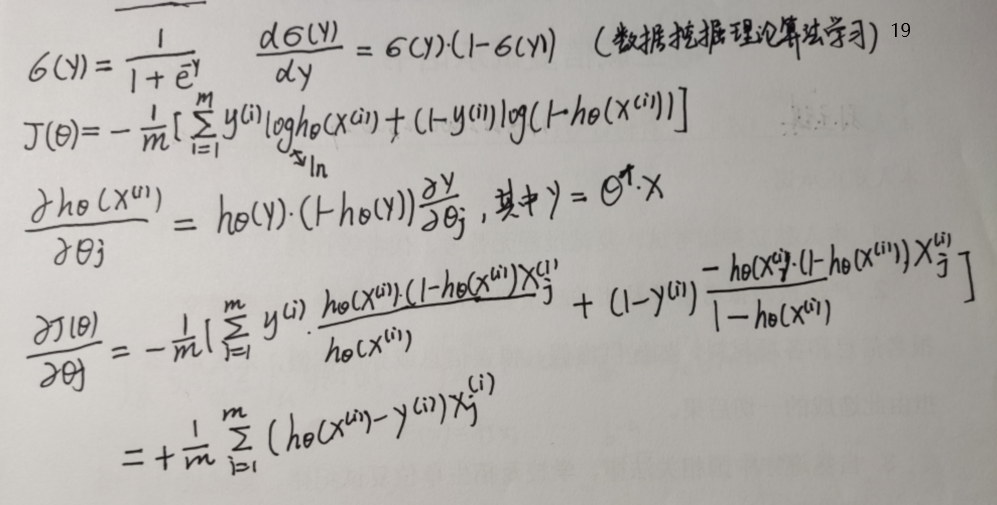 σ(y) = 1/(1+e^-y)   dσ(y)/dy = σ(y)·(1-σ(y)) (数据挖掘理论算法学习) 19
J(θ) = -1/m [∑_{i=1}^{m} y^(i) log h_θ(x^(i)) + (1-y^(i)) log(1-h_θ(x^(i)))]
↘ln
∂h_θ(x^(i))/∂θ_j = h_θ(y)·(1-h_θ(y)) ∂y/∂θ_j, 其中 y = θ^T·x
∂J(θ)/∂θ_j = -1/m [∑_{i=1}^{m} y^(i)· h_θ(x^(i))·(1-h_θ(x^(i)))x_j^(i) / h_θ(x^(i)) + (1-y^(i)) -h_θ(x^(i))·(1-h_θ(x^(i)))x_j^(i) / 1-h_θ(x^(i)) ]
= +1/m ∑_{i=1}^{m} (h_θ(x^(i)) - y^(i))x_j^(i)